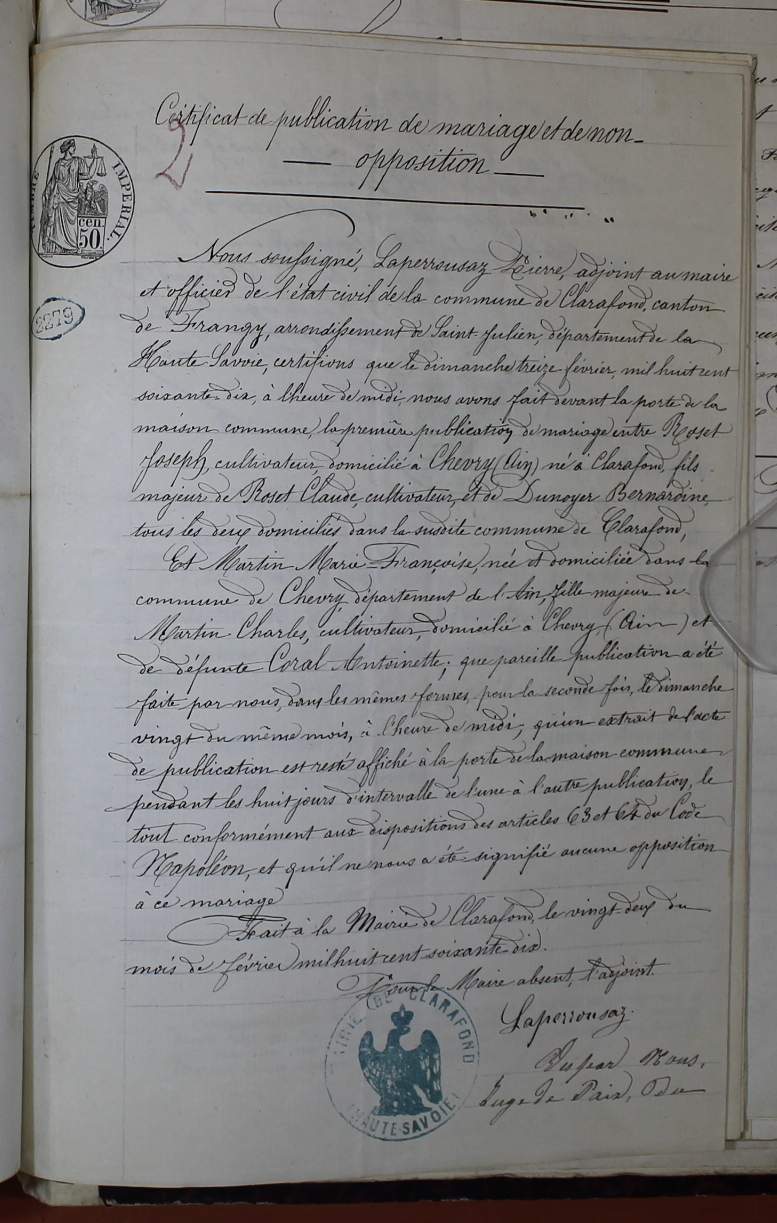 Certificat de publication de mariage et de non-
opposition
2
TIMBRE IMPERIAL.
cen.
50
2279
Nous soussigné, Laperrousaz Pierre, adjoint au maire
et officier de l'état civil de la commune de Clarafond, canton
de Frangy, arrondissement de Saint Julien, département de la
Haute Savoie, certifions que le dimanche treize février, mil huit cent
soixante-dix, à l'heure de midi, nous avons fait devant la porte de la
maison commune, la première publication de mariage entre Roset
Joseph, cultivateur, domicilié à Chevry (Ain) né à Clarafond, fils
majeur de Roset Claude, cultivateur, et de Dunoyer Bernardine,
tous les deux domiciliés dans la susdite commune de Clarafond,
Et Martin Marie-Françoise, née et domiciliée dans la
commune de Chevry, département de l'Ain, fille majeur de
Martin Charles, cultivateur, domicilié à Chevry, (Ain) et
de défunte Coral Antoinette; que pareille publication a été
faite par nous, dans les mêmes formes, pour la seconde fois, le dimanche
vingt du même mois, à l'heure de midi, qu'un extrait de l'acte
de publication est resté affiché à la porte de la maison commune
pendant les huit jours d'intervalle de l'une à l'autre publication, le
tout conformément aux dispositions des articles 63 et 64 du Code
Napoléon, et qu'il ne nous a été signifié aucune opposition
à ce mariage
Fait à la Mairie de Clarafond, le vingt-deux du
mois de février mil huit cent soixante dix.
Pour le Maire absent, l'adjoint
Laperrousaz
MAIRIE DE CLARAFOND
(HAUTE SAVOIE)
Vu par Nous,
Juge de Paix, Du